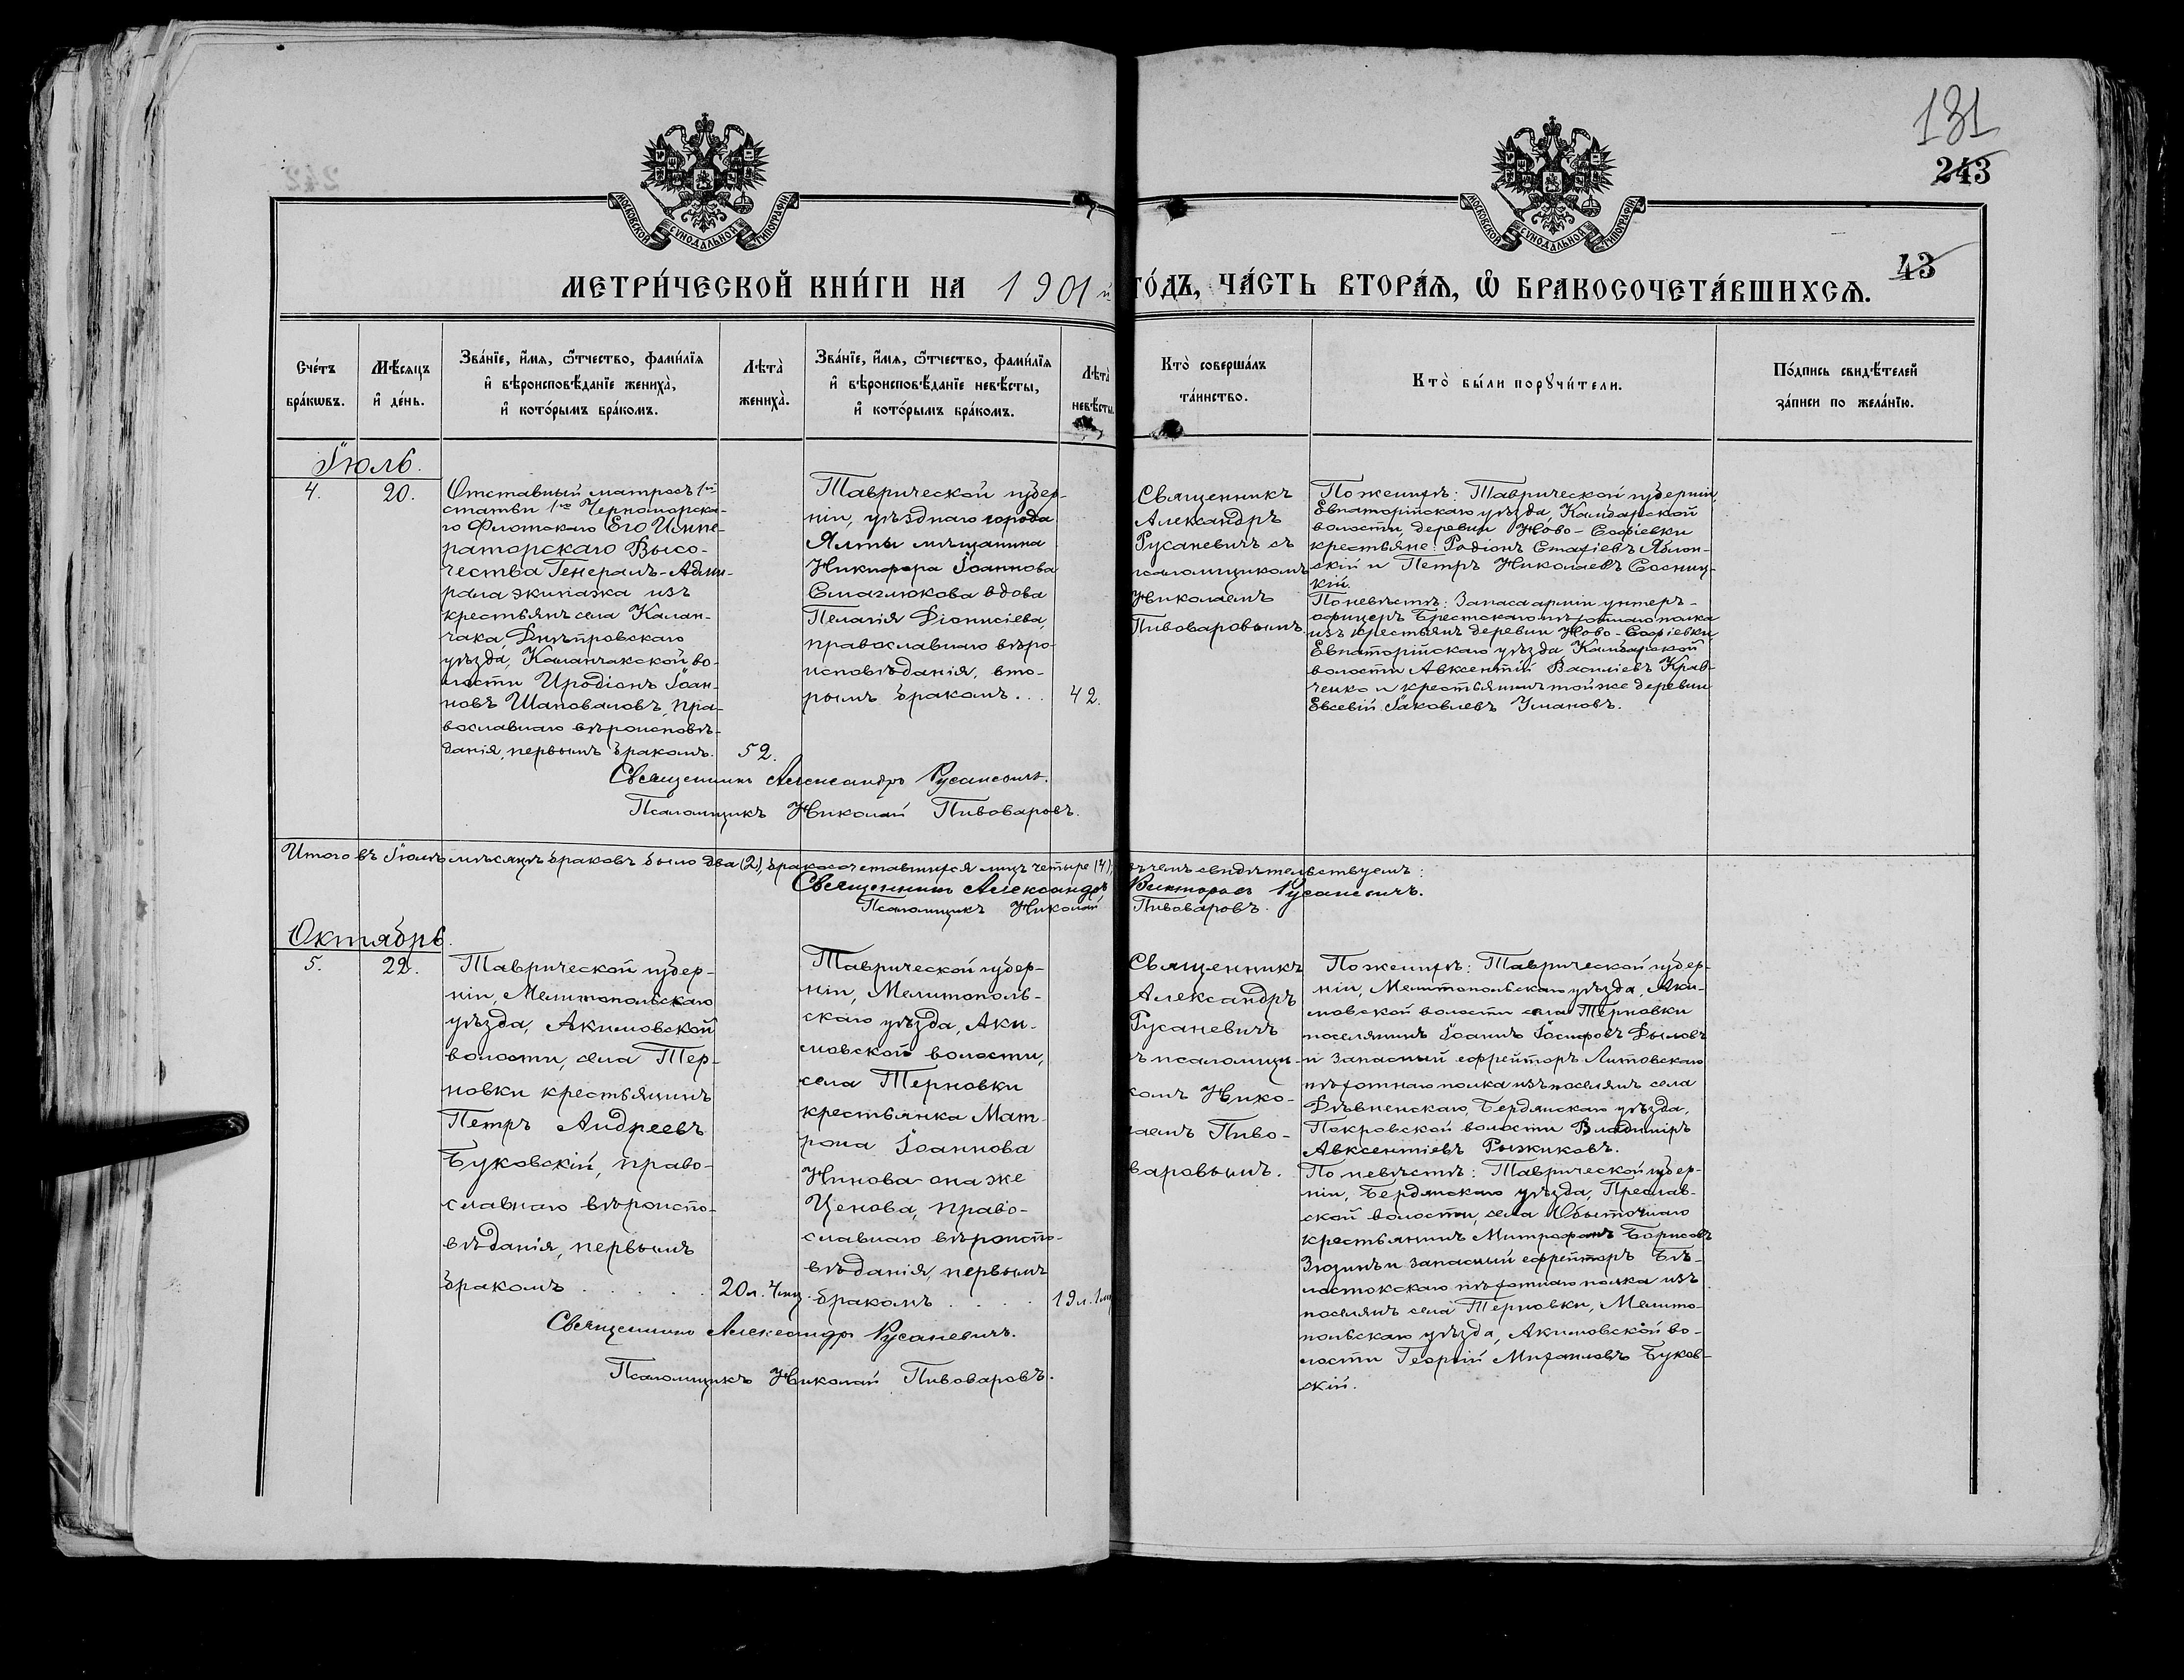 131
243
43
МОСКОВСКОЙ СѴНОДАЛЬНОЙ ТИПОГРАФІИ
МОСКОВСКОЙ СѴНОДАЛЬНОЙ ТИПОГРАФІИ
МЕТРИ́ЧЕСКОЙ КНИ́ГИ НА 1901 й ГО́ДЪ, ЧА́СТЬ ВТОРА́Ѧ, Ѽ БРАКОСОЧЕТА́ВШИХСѦ.
Сче́тъ
бра́кѡвъ.
Мѣ́сяцъ
и҆ де́нь.
Зва́нїе, и҆́мѧ, ѻ҆́тчество, фами́лїѧ
и҆ вѣроисповѣ́данїе жениха̀,
и҆ кото́рымъ бра́комъ.
Лѣта̀
жениха̀.
Зва́нїе, и҆́мѧ, ѻ҆́тчество, фами́лїѧ
и҆ вѣроисповѣ́данїе невѣ́сты,
и҆ кото́рымъ бра́комъ.
Лѣта̀
невѣ́сты.
Кто̀ соверша́лъ
та́инство.
Кто̀ бы́ли порꙋчи́тели.
По́дпись свидѣ́телей
за́писи по жела́нїю.
Іюль.
4.
20.
Отставный матросъ 1ой
статьи 1го Черноморска-
го Флотскаго Его Импе-
раторскаго Высо-
чества Генералъ-Адми-
рала экипажа изъ
крестьянъ села Калан-
чака, Днѣпровскаго
уѣзда, Каланчакской во-
лости Иродіонъ Іоан-
новъ Шаповаловъ, пра-
вославнаго вѣроисповѣ-
данія, первымъ бракомъ.
52.
Таврической губер-
ніи, уѣзднаго города
Ялты мѣщанина
Никифора Іоаннова
Смаглюкова вдова
Пелагія Діонисіева,
православнаго вѣро-
исповѣданія, вто-
рымъ бракомъ...
42.
Священникъ
Александръ
Русаневичъ съ
псаломщикомъ
Николаемъ
Пивоваровымъ.
По женихѣ: Таврической губерніи,
Евпаторійскаго уѣзда, Камбарской
волости, деревни Ново-Софіевки
крестьяне: Родіонъ Стахіевъ Яблон-
скій и Петръ Николаевъ Сосниц-
кій.
По невѣстѣ: Запаса арміи унтеръ-
офицеръ Брестскаго пѣхотнаго полка
изъ крестьянъ деревни Ново-Софіевки,
Евпаторійскаго уѣзда, Камбарской
волости Авксентій Василіевъ Крав-
ченко и крестьянинъ той же деревни
Евсевій Іаковлевъ Умановъ.
Священникъ Александръ Русаневичъ.
Псаломщикъ Николай Пивоваровъ.
Итого въ Іюлѣ мѣсяцѣ браковъ было два (2), бракосочетавшихся лицъ четыре (4), въ чемъ свидѣтельствуемъ:
Священникъ Александръ Викторовъ Русаневичъ.
Псаломщикъ Николай Пивоваровъ.
Октябрь.
5.
22.
Таврической губер-
ніи, Мелитопольскаго
уѣзда, Акимовской
волости, села Тер-
новки крестьянинъ
Петръ Андреевъ
Буковскій, право-
славнаго вѣроиспо-
вѣданія, первымъ
бракомъ
20 л. 4 мц.
Таврической губер-
ніи, Мелитополь-
скаго уѣзда, Аки-
мовской волости,
села Терновки
крестьянка Мат-
рона Іоаннова
Нинова она же
Ценова, право-
славнаго вѣроиспо-
вѣданія, первымъ
бракомъ
19 л. 1 м
Священникъ
Александръ
Русаневичъ
съ псаломщи-
комъ Нико-
лаемъ Пиво-
варовымъ.
По женихѣ: Таврической губер-
ніи, Мелитопольскаго уѣзда, Аки-
мовской волости села Терновки
поселянинъ Іоаннъ Іосифовъ Дыловъ
и запасный ефрейторъ Литовскаго
пѣхотнаго полка изъ поселянъ села
Дѣвненскаго, Бердянскаго уѣзда,
Покровской волости Владиміръ
Авксентіевъ Рыжиковъ.
По невѣстѣ: Таврической губер-
ніи, Бердянскаго уѣзда, Преслав-
ской волости, села Обыточнаго
крестьянинъ Митрофанъ Борисовъ
Зюзинъ и запасный ефрейторъ Бѣ-
лостокскаго пѣхотнаго полка изъ
поселянъ села Терновки, Мелито-
польскаго уѣзда, Акимовской во-
лости Георгій Михаиловъ Буков-
скій.
Священникъ Александръ Русаневичъ.
Псаломщикъ Николай Пивоваровъ.